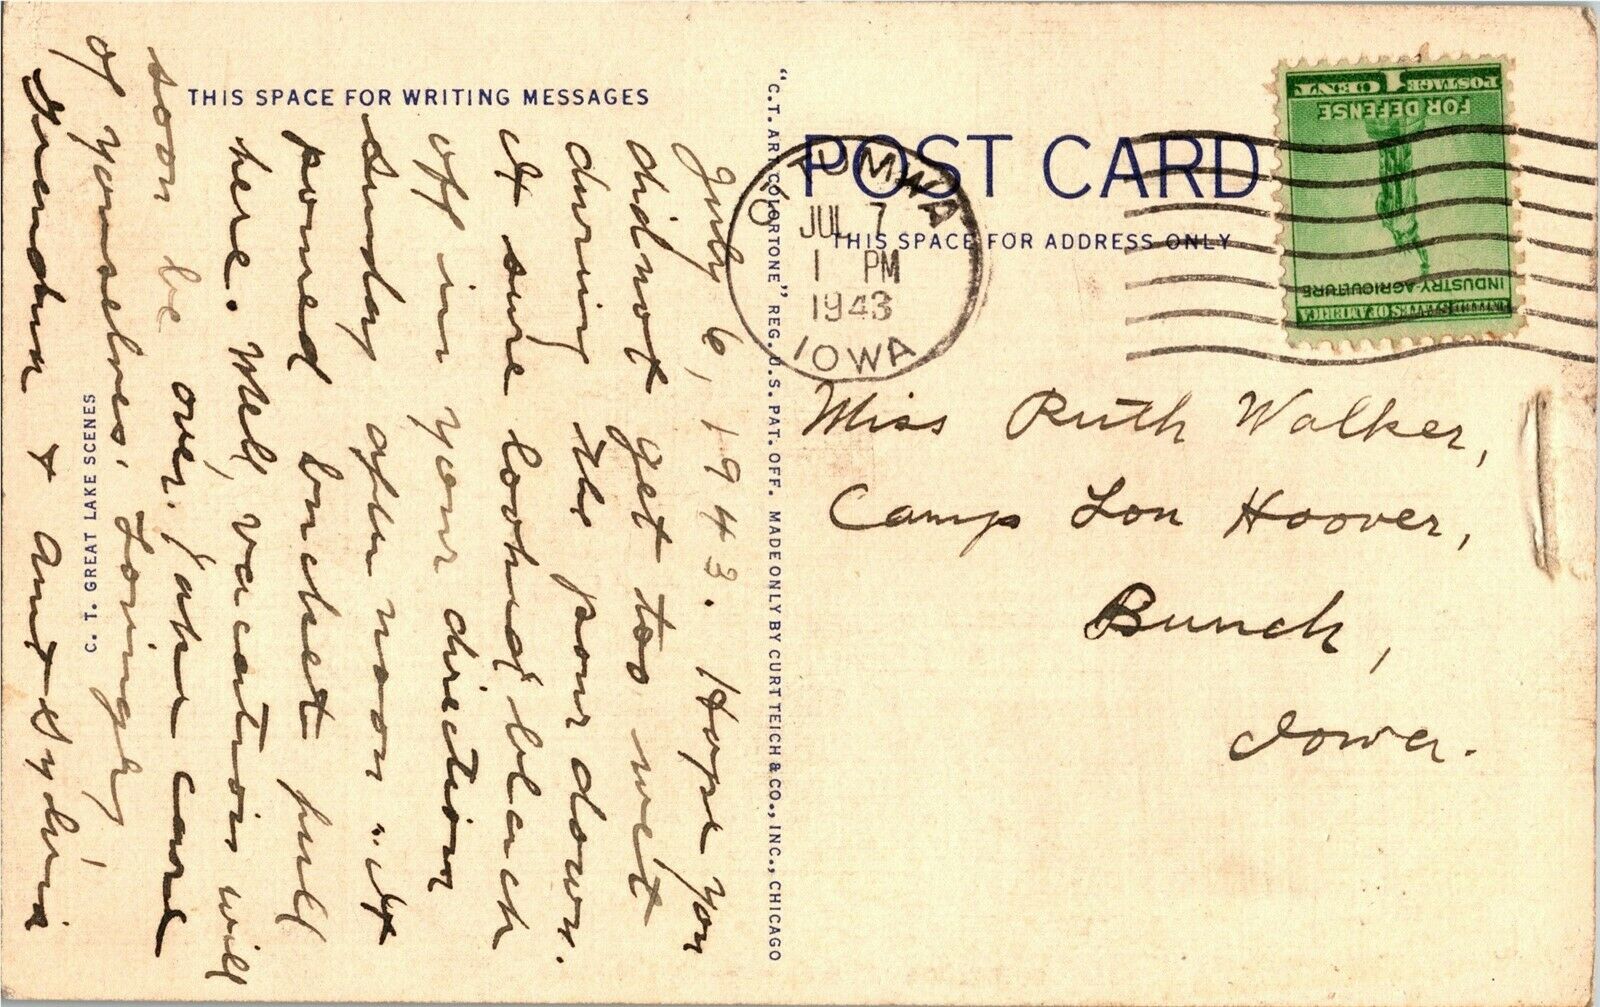 THIS SPACE FOR WRITING MESSAGES
July 6, 1943. Hope you
did not get too wet
during the pour down.
It sure looked bleach
off in your direction
Sunday afternoon. It
poured bucket full
here. Well, vacation will
soon be over, take care
of yourselves. Lovingly
Grandma & Aunt Sylvia
C. T. GREAT LAKE SCENES
"C.T. ART-COLORTONE" REG. U.S. PAT. OFF. MADE ONLY BY CURT TEICH & CO., INC., CHICAGO
POST CARD
THIS SPACE FOR ADDRESS ONLY
OTTUMWA
JUL 7
1 PM
1943
IOWA
UNITED STATES OF AMERICA
INDUSTRY AGRICULTURE
FOR DEFENSE
POSTAGE 1 CENT
Miss Ruth Walker,
Camp Lou Hoover,
Bunch,
Iowa.